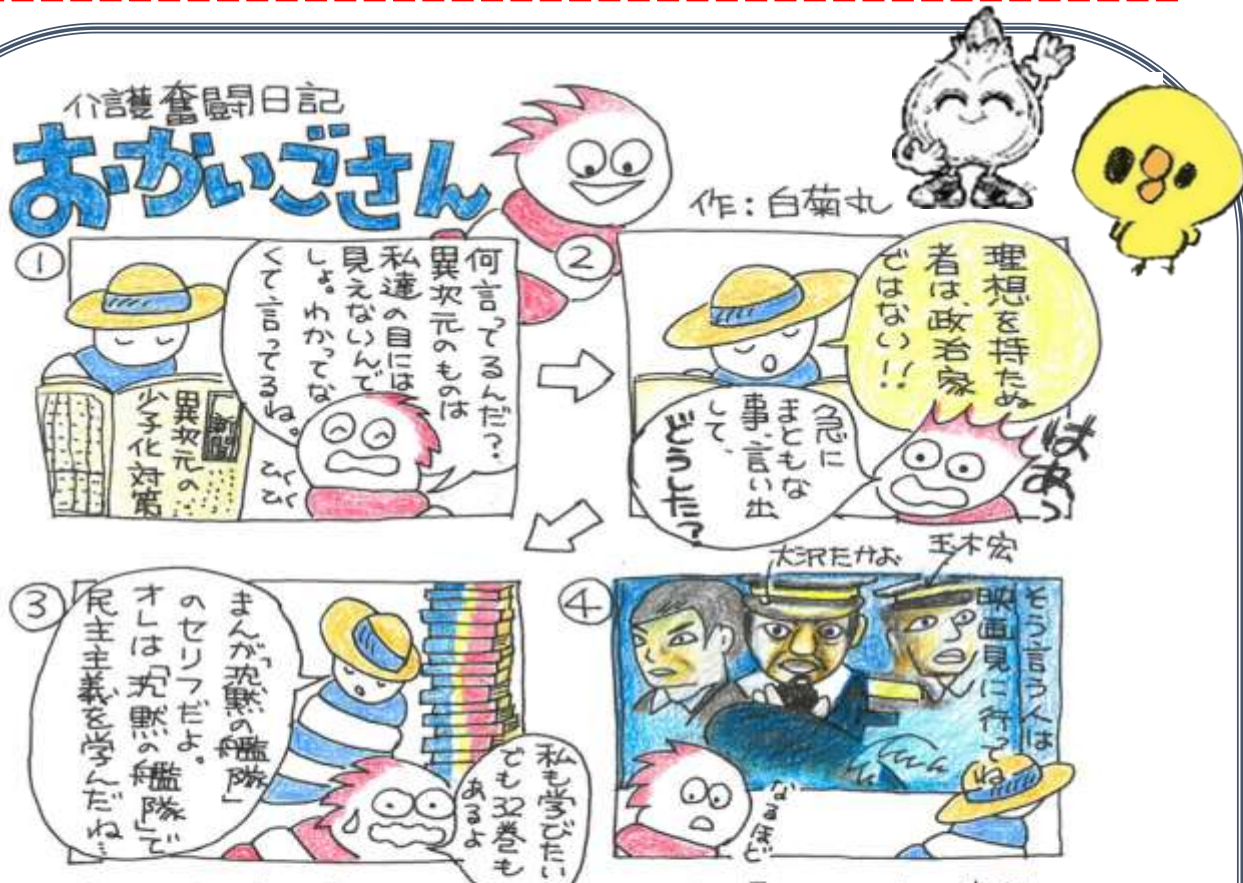 介護奮闘日記
おかいごさん
作：白菊丸
①
何言ってるんだ？
異次元のものは
私達の目には
見えないんで
しょ。わかってな
くて言ってるね。
異次元の
少子化対策
②
理想を持たぬ
者は、政治家
ではない!!
はあっ
急に
まともな
事、言い出
して、
どうした？
③
まんが「沈黙の艦隊」
のセリフだよ。
オレは「沈黙の艦隊」で
民主主義を学んだね…
私も学びたい
でも32巻も
あるよ
④
大沢たかお
玉木宏
そう言う人は
映画見に行ってね
なるほど